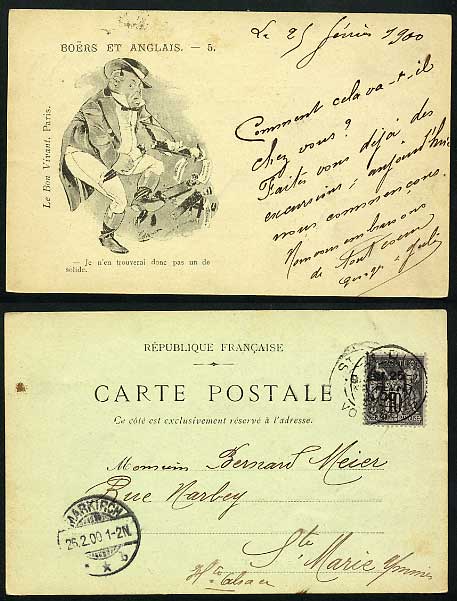 BOËRS ET ANGLAIS. — 5.
Le Bon Vivant, Paris.
— Je n'en trouverai donc pas un de
solide.
Le 25 février 1900
Comment cela va-t-il
chez vous?
Faites vous déjà des
excursions; aujourd'hui
nous commençons.
de tout coeur
RÉPUBLIQUE FRANÇAISE
CARTE POSTALE
Ce côté est exclusivement réservé à l'adresse.
Monsieur Bernard Meier
Rue Narbey
Ste Marie
Hte Alsace
MARKIRCH
26.2.00 1-2N
b
10